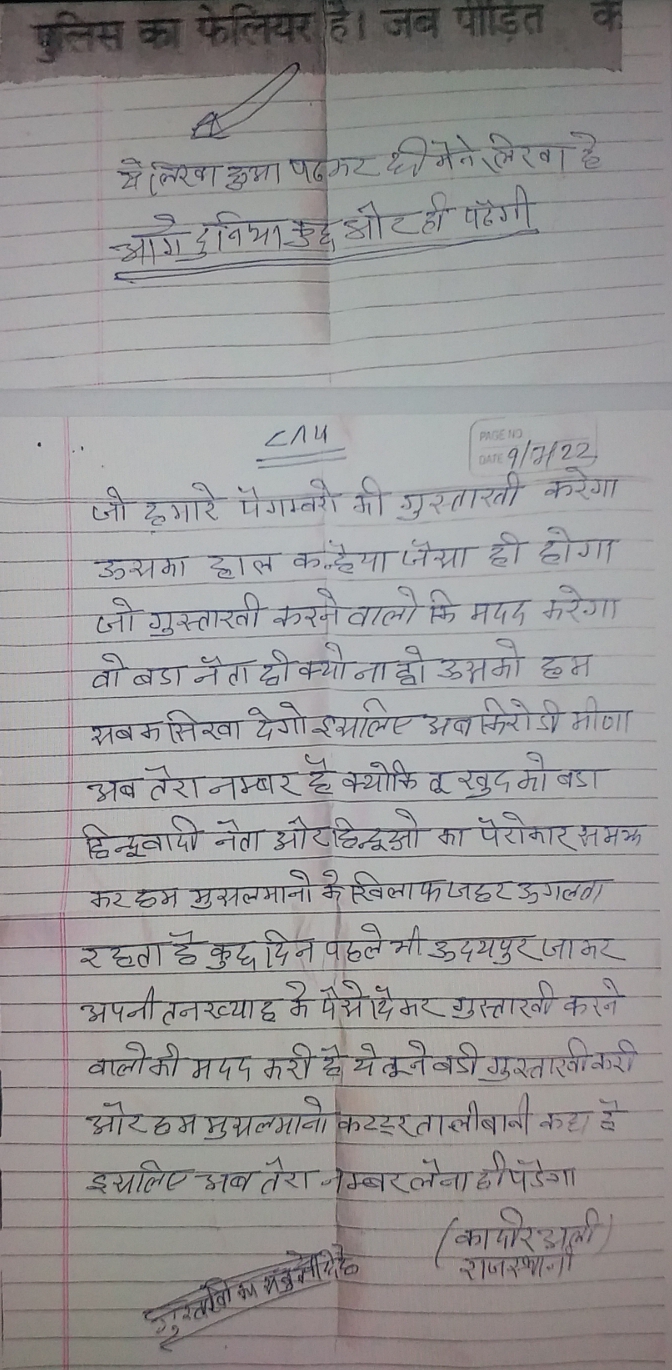 पुलिस का फेलियर है। जब पीड़ित के
ये लिखा हुआ पढकर ही मैने लिखा है
आगे दुनिया कुछ ओर ही पढेगी
PAGE NO
DATE 9/7/22
जो हमारे पैगम्बरो की गुस्ताखी करेगा
ऊसका हाल कन्हैया जैसा ही होगा
जो गुस्ताखी करने वालो कि मदद करेगा
वो बडा नेता ही क्यो ना हो ऊसको हम
सबक सिखा देगो इसलिए अब किरोडी मीणा
अब तेरा नम्बर है क्योकि तू खुद को बडा
हिन्दूवादी नेता और हिन्दूओ का पैरोकार समझ
कर हम मुसलमानो के खिलाफ जहर ऊगलता
रहता है कुछ दिन पहले भी ऊदयपुर जाकर
अपनी तनख्याह के पैसे देकर गुस्ताखी करने
वालो की मदद करी है ये तूने बडी गुस्ताखी करी
और हम मुसलमानो कटटर तालीबानी कहा है
इसलिए अब तेरा नम्बर लेना ही पडेगा
(कादीर अली)
राजस्थानी